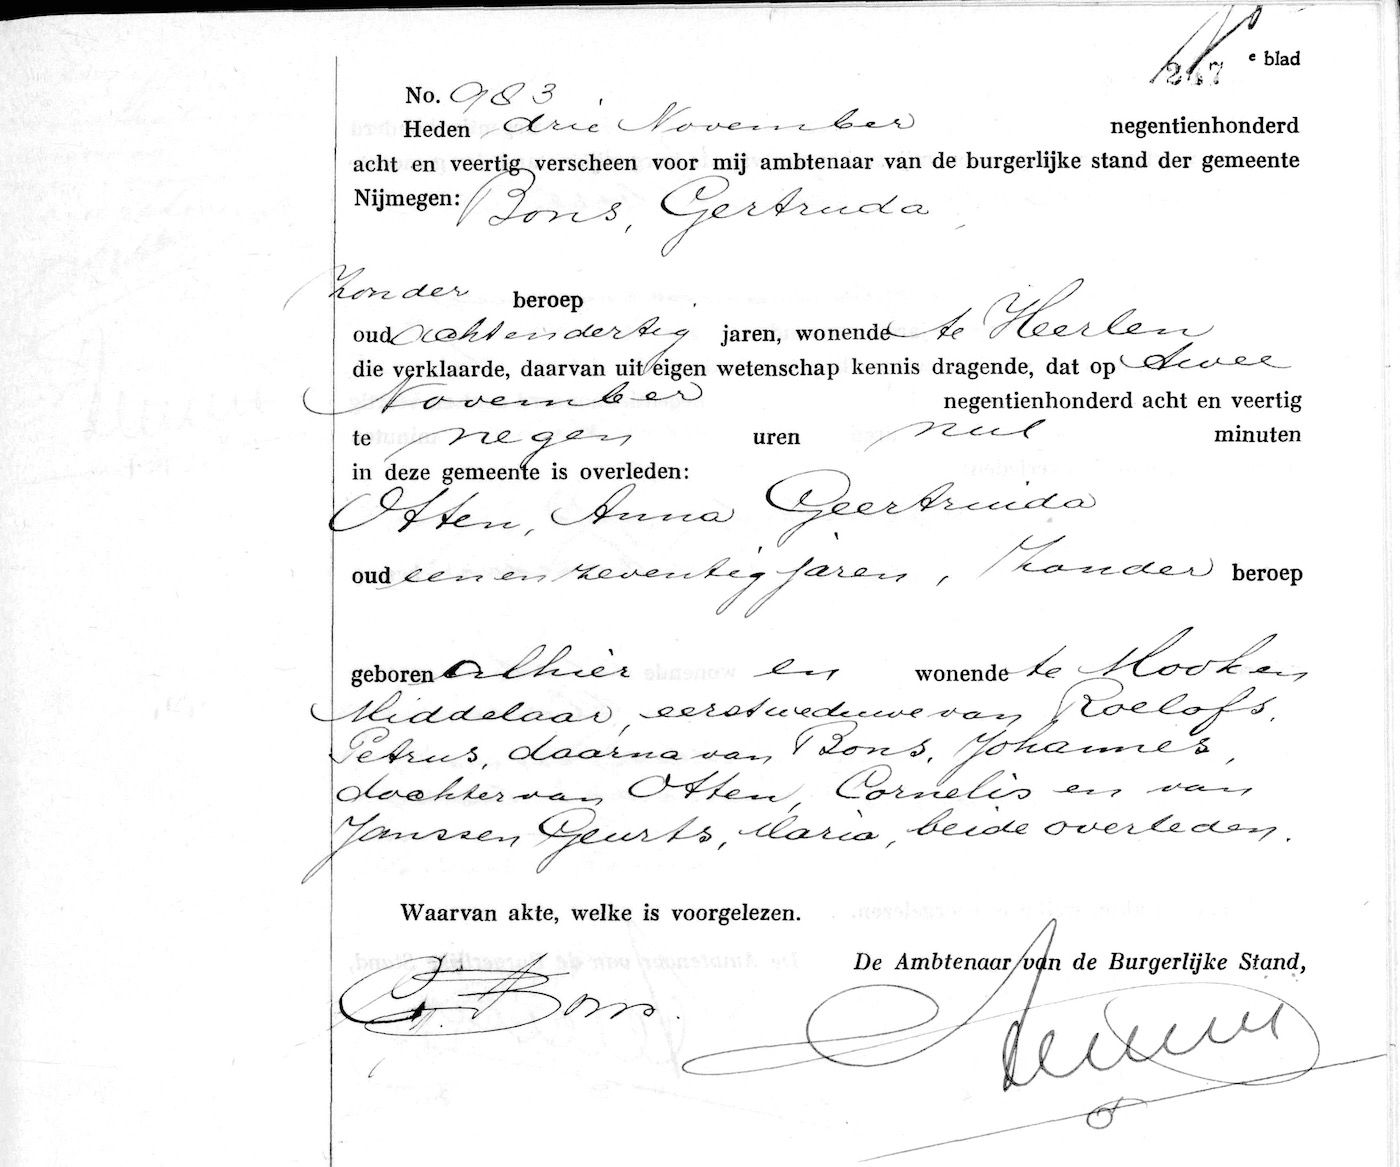 247 e blad
No. 983
Heden drie November negentienhonderd
acht en veertig verscheen voor mij ambtenaar van de burgerlijke stand der gemeente
Nijmegen: Bons, Gertruda
zonder beroep
oud achtendertig jaren, wonende te Heerlen
die verklaarde, daarvan uit eigen wetenschap kennis dragende, dat op twee
November negentienhonderd acht en veertig
te negen uren nul minuten
in deze gemeente is overleden:
Otten, Anna Geertruida
oud eenenzeventig jaren, zonder beroep
geboren alhier en wonende te Mook en
Middelaar, eerst weduwe van Roelofs,
Petrus, daarna van Bons, Johannes,
dochter van Otten, Cornelis en van
Janssen Geurts, Maria, beide overleden.
Waarvan akte, welke is voorgelezen.
De Ambtenaar van de Burgerlijke Stand,
G. Bons.